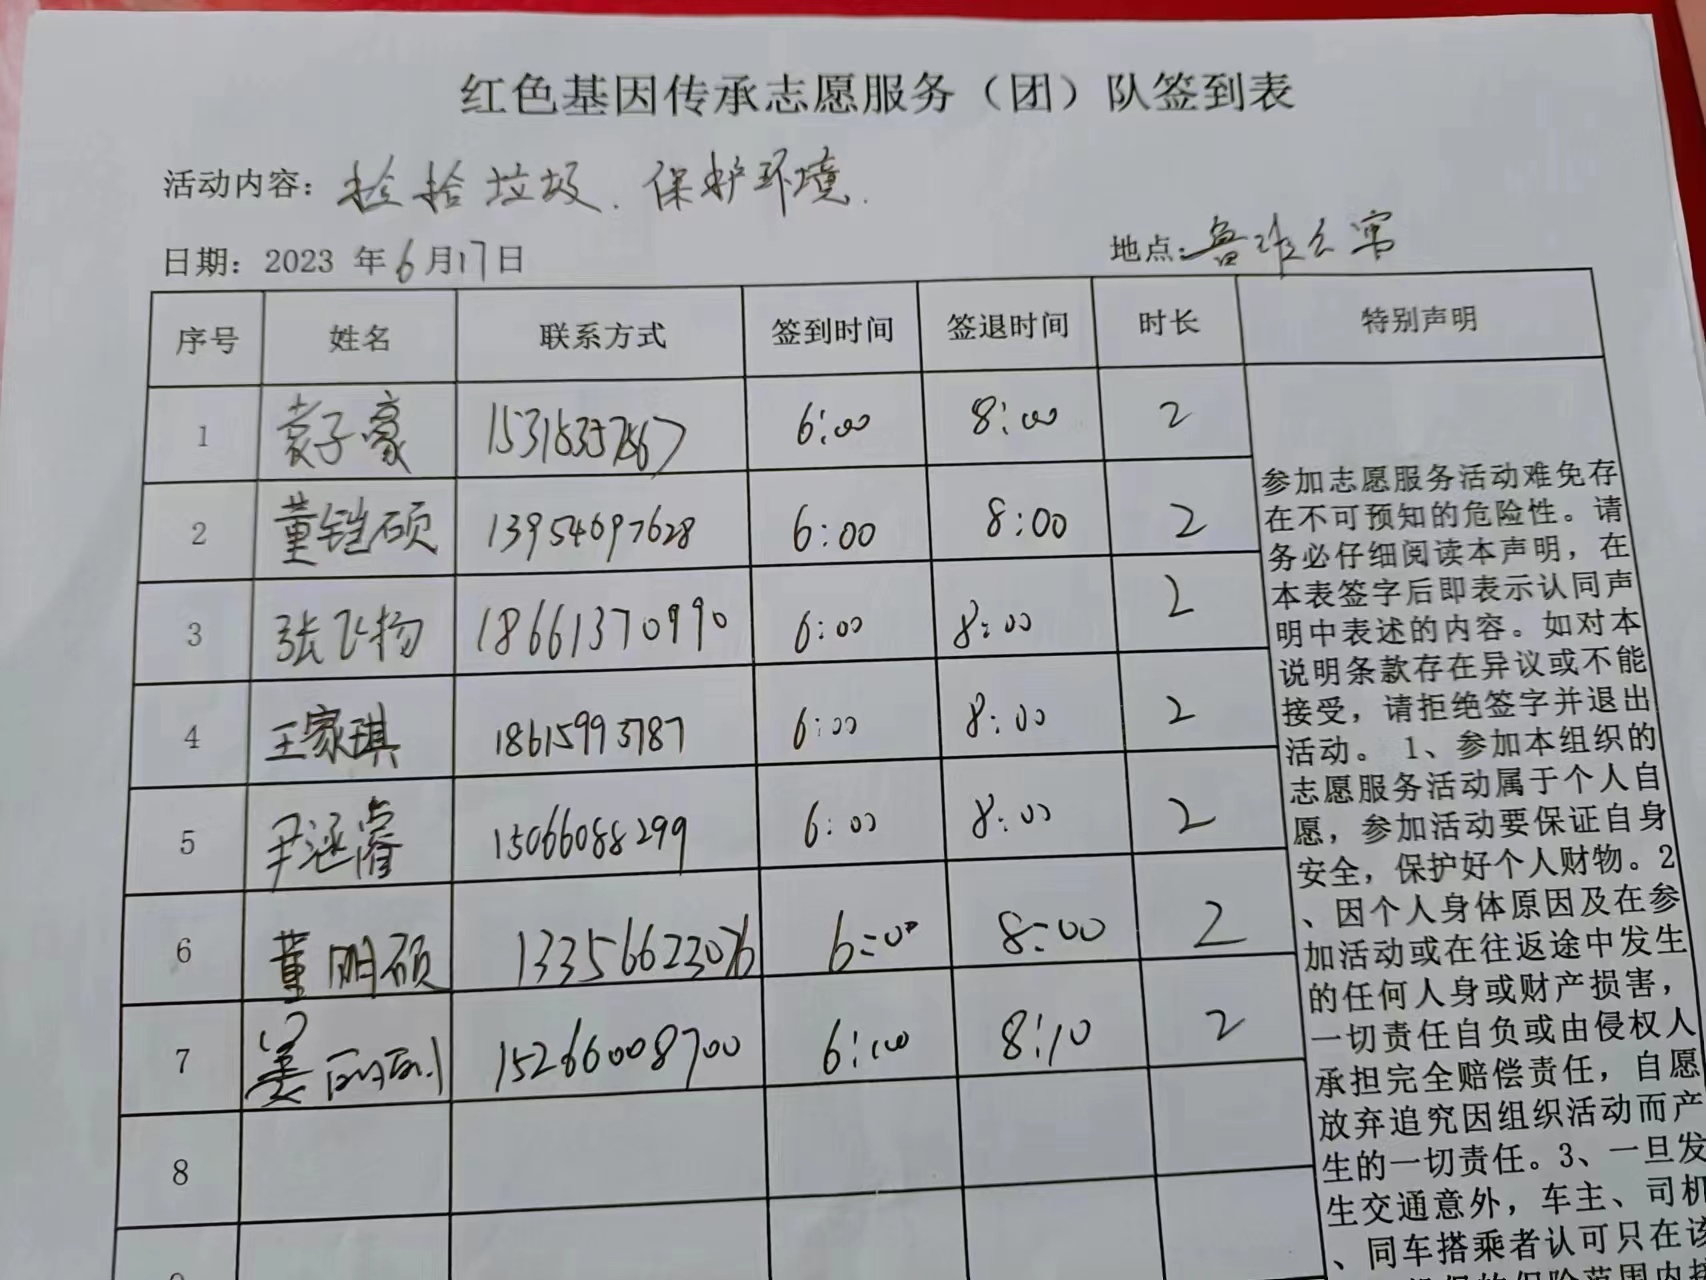 红色基因传承志愿服务（团）队签到表
活动内容：捡拾垃圾、保护环境.
日期：2023 年6月17日
地点：鲁班公寓
序号 姓名 联系方式 签到时间 签退时间 时长 特别声明
1 袁子豪 6:00 8:00 2
2 董铠硕 13954697628 6:00 8:00 2
3 张飞扬 18661370990 6:00 8:00 2
4 王家琪 18615993787 6:00 8:00 2
5 尹涵睿 15066088299 6:00 8:00 2
6 董明硕 13356623076 6:00 8:00 2
7 姜丽丽 15266008700 6:00 8:10 2
8
参加志愿服务活动难免存
在不可预知的危险性。请
务必仔细阅读本声明，在
本表签字后即表示认同声
明中表述的内容。如对本
说明条款存在异议或不能
接受，请拒绝签字并退出
活动。1、参加本组织的
志愿服务活动属于个人自
愿，参加活动要保证自身
安全，保护好个人财物。2
、因个人身体原因及在参
加活动或在往返途中发生
的任何人身或财产损害，
一切责任自负或由侵权人
承担完全赔偿责任，自愿
放弃追究因组织活动而产
生的一切责任。3、一旦发
生交通意外，车主、司机
、同车搭乘者认可只在该